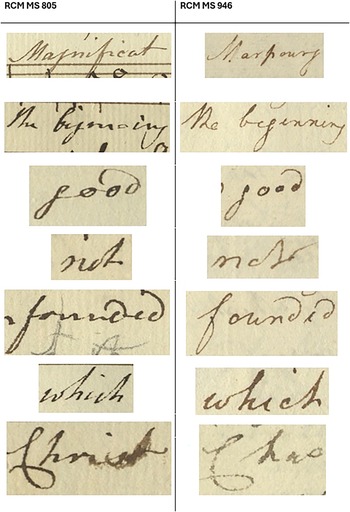 RCM MS 805 RCM MS 946
Magnificat Marpourg
the begin̄ing the beginning
good good
not not
founded founded
which which
Christ